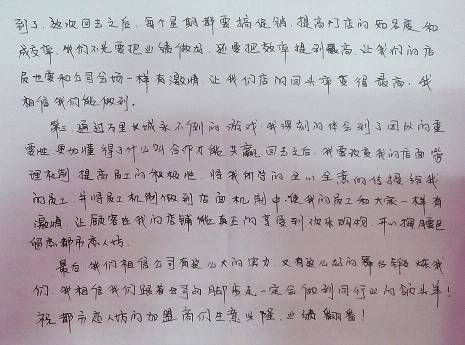 到了，这次回去之后，每个星期都要搞促销，提高门店的知名度和
成交率，我们不光要把业绩做好，还要把效率提到最高，让我们的店
员也要和公司会场一样有激情，让我们店的回头率变得最高。我
相信我们能做到。
第二，通过万里长城永不倒的游戏，我深刻的体会到了团队的重
要性，更加懂得了什么叫合作才能共赢，回去之后，我要改变我的店面管
理机制，提高员工的积极性，将我所学的全心全意的传授给我
的员工，并将员工机制做到店面机制中，使我的员工和大家一样有
激情，让顾客在我的店铺能真正的享受到欢乐购物，开心掏腰包
留恋都市恋人坊。
最后，我们相信公司有这么大的实力，又有这么好的舞台锻炼我
们，我相信我们跟着公司的脚步走一定会做到同行业的领头羊！
祝都市恋人坊的加盟商们生意兴隆，业绩翻番！